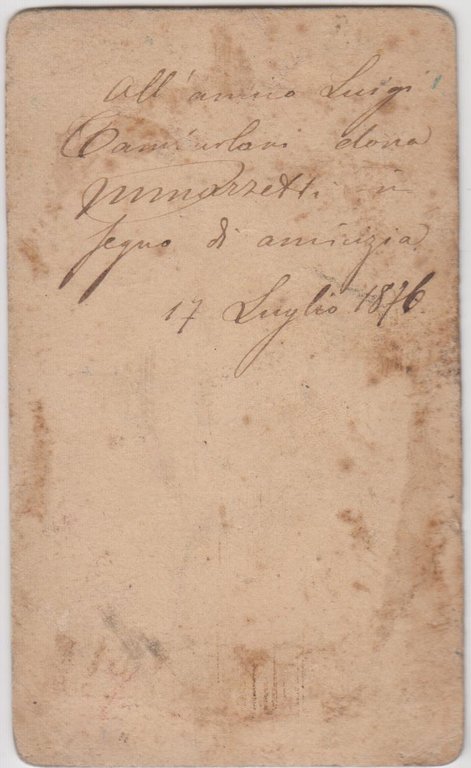 All'amico Luigi
dona
in
segno di amicizia
17 Luglio 1876.